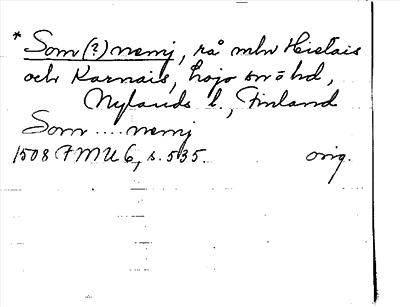 * Som(?)nemj, rå mln Hietais
och Karnais, Lojo sn o hd,
Nylands l., Finland
Som....nemj
1508 FMU 6, s. 535. orig.